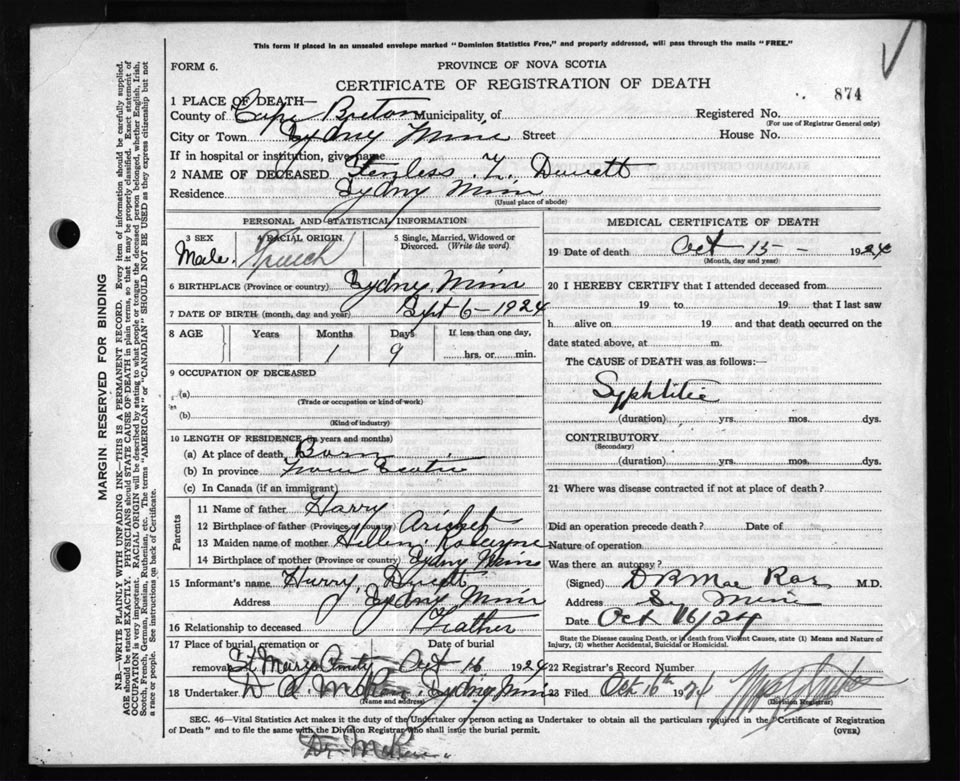 This form if placed in an unsealed envelope marked "Dominion Statistics Free," and properly addressed, will pass through the mails "FREE."
FORM 6.
PROVINCE OF NOVA SCOTIA
CERTIFICATE OF REGISTRATION OF DEATH
874
1 PLACE OF DEATH—
County of Cape Breton Municipality of
Registered No.
(For use of Registrar General only)
City or Town Sydny Mines Street House No.
If in hospital or institution, give name
2 NAME OF DECEASED
Residence Sydny Mines
(Usual place of abode)
PERSONAL AND STATISTICAL INFORMATION
3 SEX 4 RACIAL ORIGIN 5 Single, Married, Widowed or Divorced. (Write the word)
Male. French
6 BIRTHPLACE (Province or country) Sydny Mines
7 DATE OF BIRTH (month, day and year) Sept 6-1924
8 AGE Years Months Days If less than one day,
1 9 hrs. or min.
9 OCCUPATION OF DECEASED
(a)
(Trade or occupation or kind of work)
(b)
(Kind of industry)
10 LENGTH OF RESIDENCE (in years and months)
(a) At place of death Born
(b) In province Nova Scotia
(c) In Canada (if an immigrant)
Parents
11 Name of father Harry
12 Birthplace of father (Province or country) Arichet
13 Maiden name of mother Hellen
14 Birthplace of mother (Province or country) Sydny Mines
15 Informant's name Harry
Address Sydny Mines
16 Relationship to deceased Feather
17 Place of burial, cremation or Date of burial
removal St Marys Oct 16 1924
18 Undertaker Sydny Mines
(Name and address)
MEDICAL CERTIFICATE OF DEATH
19 Date of death Oct 15 - 1924
(Month, day and year)
20 I HEREBY CERTIFY that I attended deceased from
19 to 19 that I last saw
h alive on 19 and that death occurred on the
date stated above, at m.
The CAUSE of DEATH was as follows:—
Syphlitic
(duration) yrs. mos. dys.
CONTRIBUTORY
(Secondary)
(duration) yrs. mos. dys.
21 Where was disease contracted if not at place of death?
Did an operation precede death? Date of
Nature of operation
Was there an autopsy?
(Signed) M.D.
Address Sy Mines
Date Oct 16/24
State the Disease causing Death, or in death from Violent Causes, state (1) Means and Nature of Injury, (2) whether Accidental, Suicidal or Homicidal.
22 Registrar's Record Number
23 Filed Oct 16th 1924
(Division Registrar)
SEC. 46—Vital Statistics Act makes it the duty of the Undertaker or person acting as Undertaker to obtain all the particulars required in the "Certificate of Registration
of Death" and to file the same with the Division Registrar who shall issue the burial permit.
(OVER)
MARGIN RESERVED FOR BINDING
N.B.—WRITE PLAINLY WITH UNFADING INK—THIS IS A PERMANENT RECORD. Every item of information should be carefully supplied.
AGE should be stated EXACTLY. PHYSICIANS should STATE CAUSE OF DEATH in plain terms, so that it may be properly classified. Exact statement of
OCCUPATION is very important. RACIAL ORIGIN will be described by stating to what people or tongue the deceased person belonged, whether English, Irish,
Scotch, French, German, Russian, Ruthenian, etc. The terms "AMERICAN" or "CANADIAN" SHOULD NOT BE USED as they express citizenship but not
a race or people. See instructions on back of Certificate.